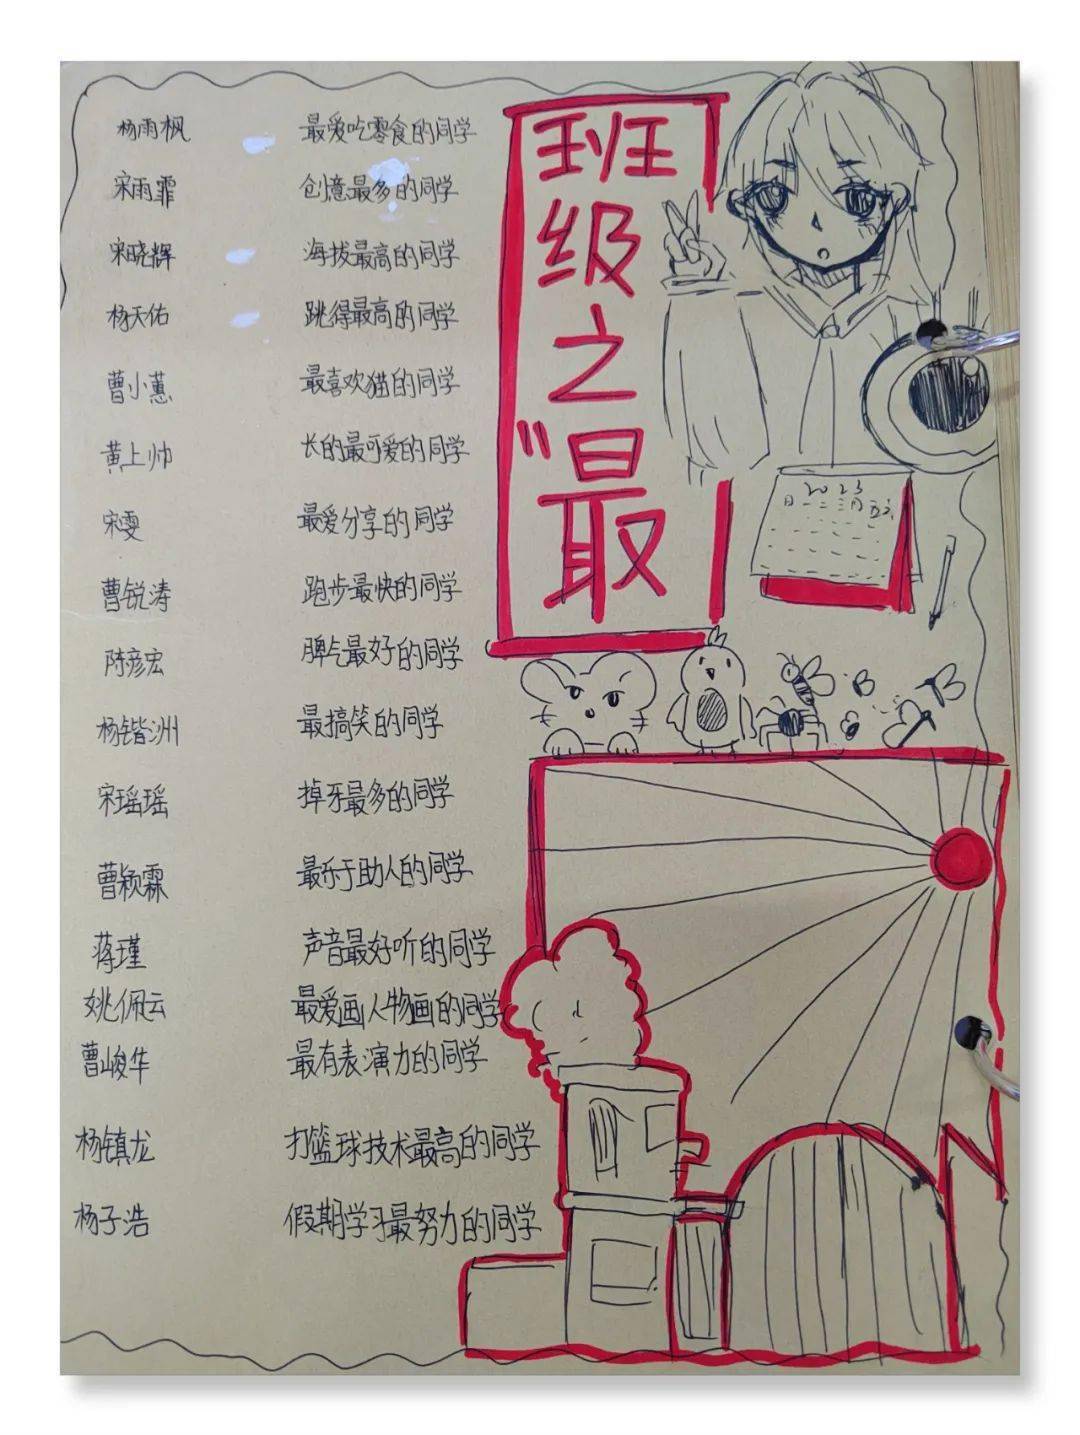 班级之"最
杨雨枫 最爱吃零食的同学
宋雨霏 创意最多的同学
宋晓辉 海拔最高的同学
杨天佑 跳得最高的同学
曹小蕙 最喜欢猫的同学
黄上帅 长的最可爱的同学
宋雯 最爱分享的同学
曹锐涛 跑步最快的同学
陈彦宏 脾气最好的同学
杨锴洲 最搞笑的同学
宋瑶瑶 掉牙最多的同学
曹颖霖 最乐于助人的同学
蒋瑾 声音最好听的同学
姚佩云 最爱画人物画的同学
曹峻华 最有表演力的同学
杨镇龙 打篮球技术最高的同学
杨子浩 假期学习最努力的同学
2023
日一二三四五六